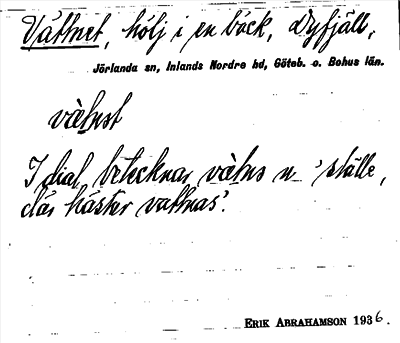 Vattnet, hölj i en bäck, Dyfjäll,
Jörlanda sn, Inlands Nordre hd, Göteb. o. Bohus län.
vàtnst
I dial. betecknar vàtns n 'ställe,
där hästar vattnas'.
ERIK ABRAHAMSON 1936.